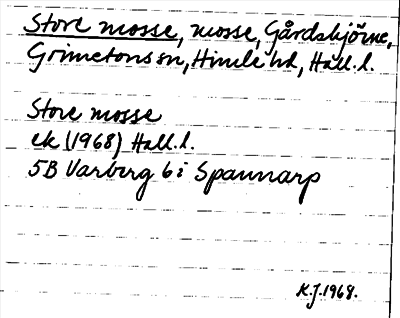 Store mosse, mosse, Gårdskjörne,
Grimetons sn, Himle hd, Hall. l.
Store mosse
ek (1968) Hall. l.
5B Varberg 6i Spannarp
K.J. 1968.